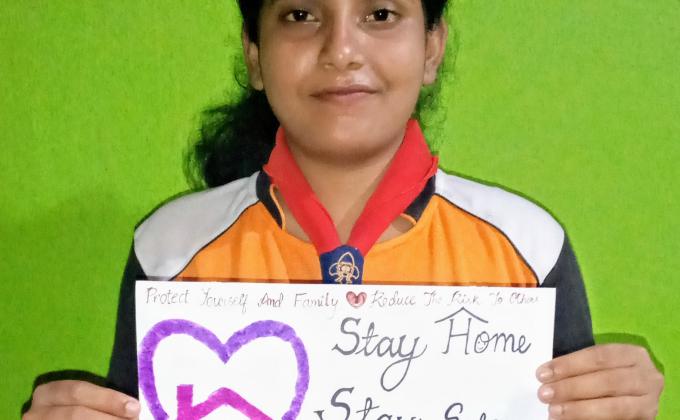 Protect Yourself And Family Reduce The Risk To Others
Stay Home
Stay Safe